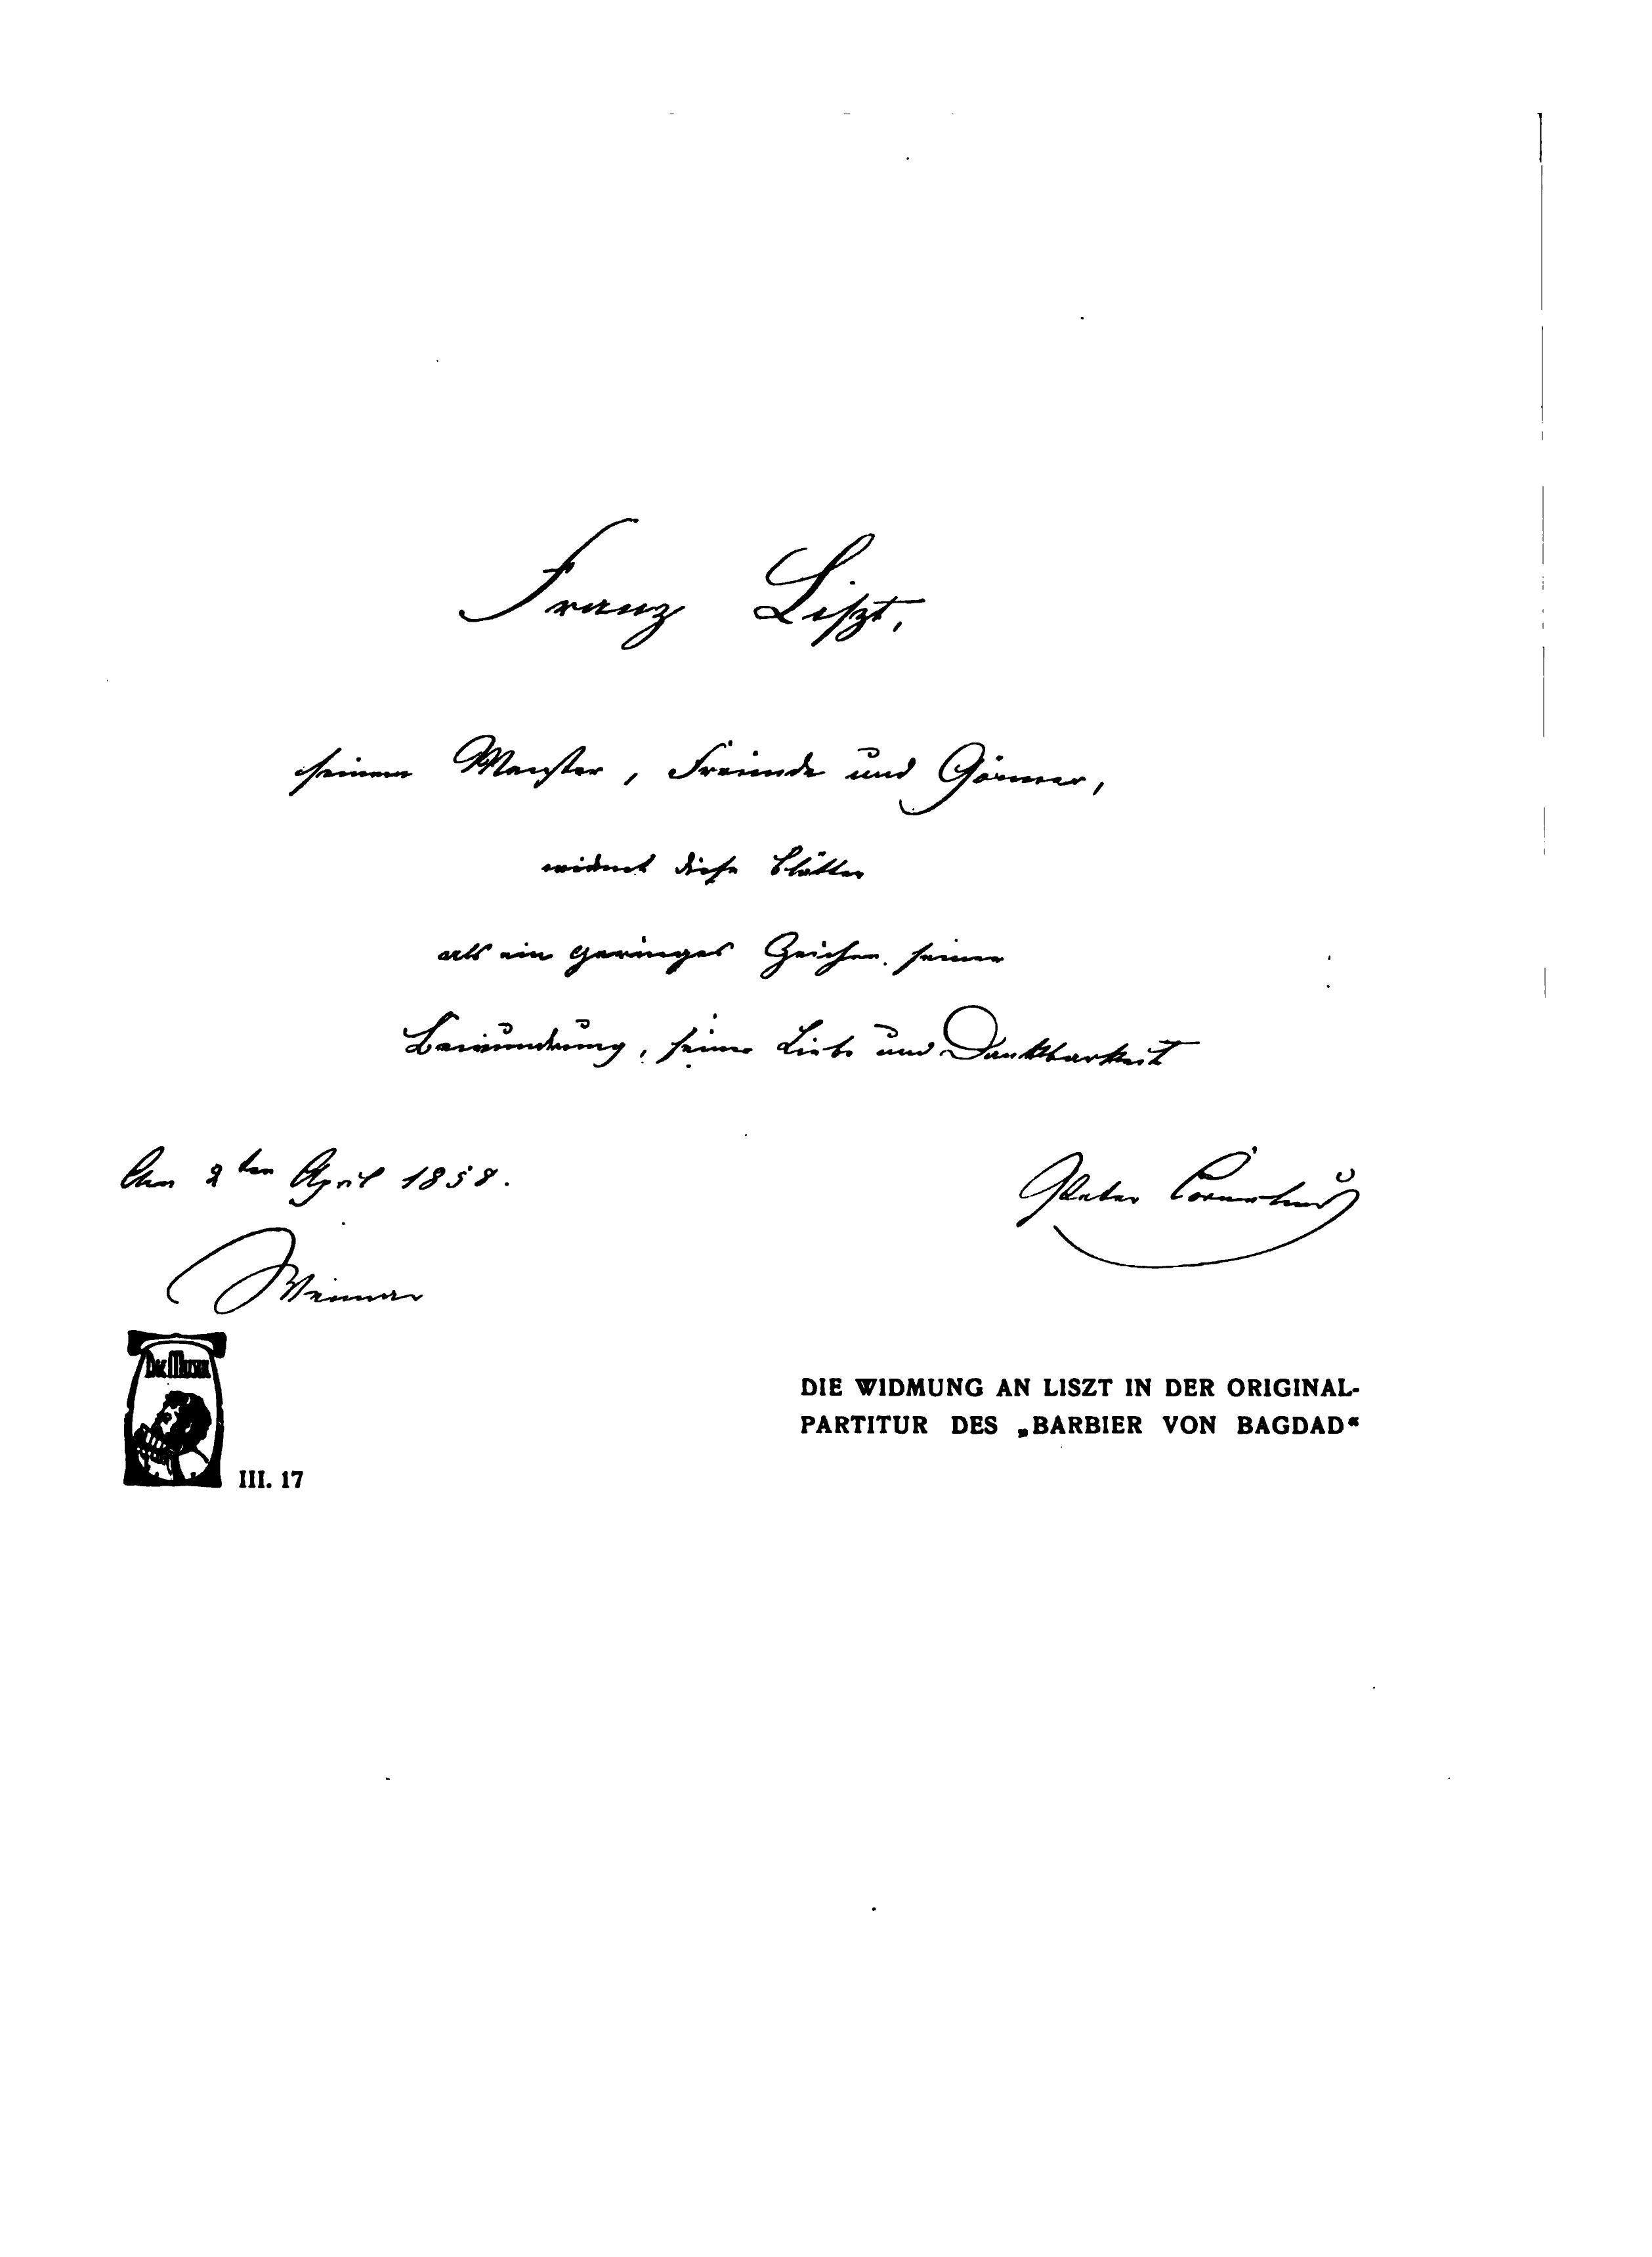 Franz Liszt,
seinem Meister, Freunde und Gönner,
widmet diese Blätter
als ein geringes Zeichen seiner
Bewundrung, seiner Liebe und Dankbarkeit
Am 2ten April 1858.
Peter Cornelius
Weimar
DIE MUSIK
III. 17
DIE WIDMUNG AN LISZT IN DER ORIGINAL-
PARTITUR DES „BARBIER VON BAGDAD“